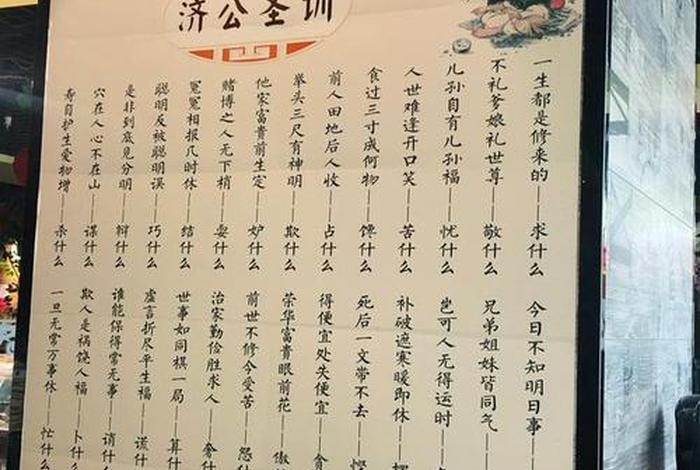 济公圣训
一生都是修来的——求什么
不礼爹娘礼世尊——敬什么
儿孙自有儿孙福——忧什么
人世难逢开口笑——苦什么
食过三寸成何物——馋什么
前人田地后人收——占什么
举头三尺有神明——欺什么
他家富贵前生定——妒什么
赌博之人无下梢——耍什么
冤冤相报几时休——结什么
聪明反被聪明误——巧什么
是非到底见分明——辩什么
穴在人心不在山——谋什么
寿自护生爱物增——杀什么
今日不知明日事——
兄弟姐妹皆同气——
岂可人无得运时——
补破遮寒暖即休——
死后一文带不去——悭
得便宜处失便宜——贪
荣华富贵眼前花——傲
前世不修今受苦——怨什
治家勤俭胜求人——奢什
世事如同棋一局——算什
虚言折尽平生福——谎什
谁能保得常无事——诮什
欺人是祸饶人福——卜什么
一旦无常万事休——忙什么